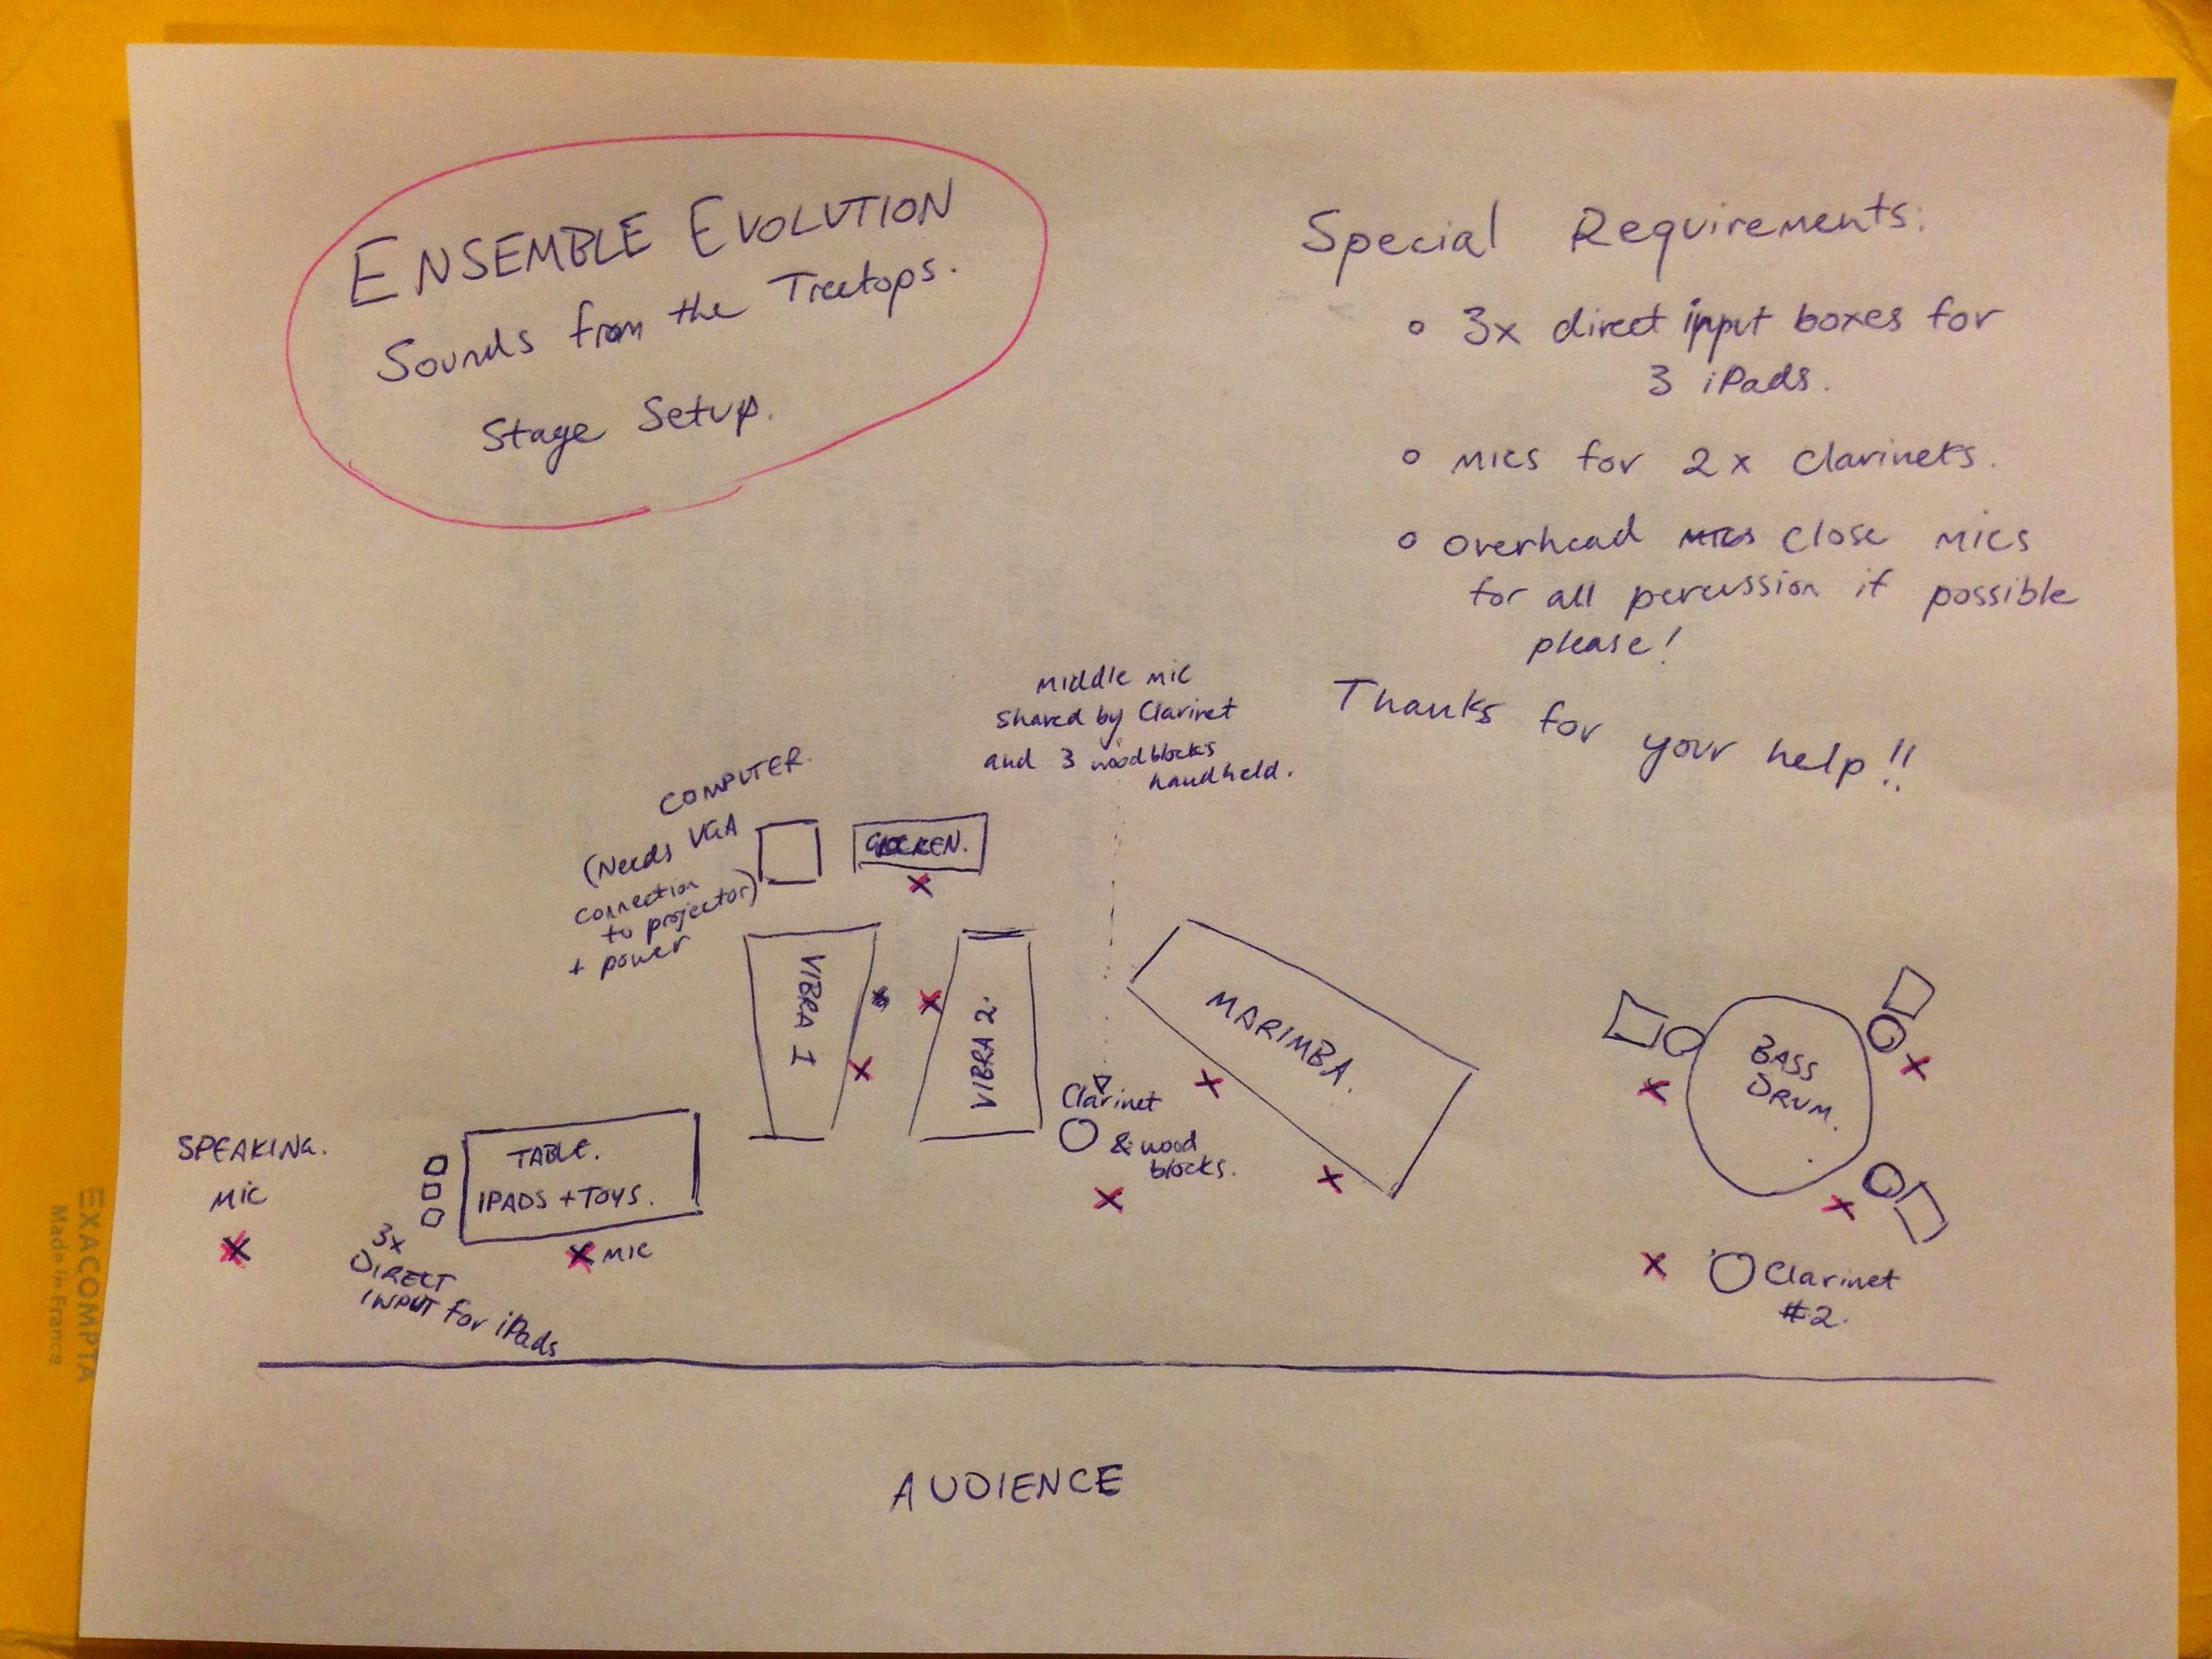 ENSEMBLE EVOLUTION
Sounds from the Treetops.
Stage Setup.
Special Requirements:
3x direct input boxes for
3 iPads.
MICS for 2x Clarinets.
Overhead MICS Close MICS
for all percussion if possible
please!
Thanks for your help!!
Middle Mic
shared by Clarinet
and 3 woodblocks
handheld.
COMPUTER.
(Needs VGA
connection
to projector)
+ power
GLOCKEN.
VIBRA 1
VIBRA 2.
MARIMBA.
BASS
DRUM.
Clarinet
& wood
blocks.
SPEAKING.
MIC
TABLE.
IPADS + TOYS.
MIC
3x
DIRECT
INPUT for iPads
Clarinet
#2.
AUDIENCE
EXACOMPTA
Made in France